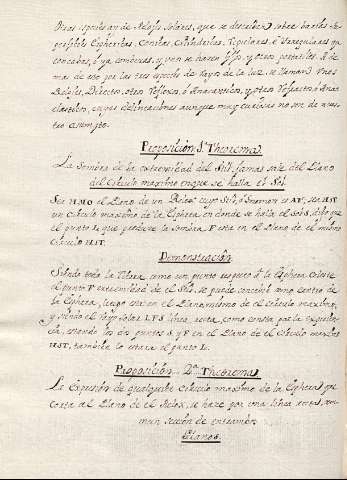 Otros aqui se an de Reloxs Solares, que se descriven sobre barias su-
perficies Esphericas, Conicas, Cilindricas, Regulares, è Irregulares ya
concabas, ò ya comvexas, y unos se hacen fijos, y otros portatiles. A de
mas de eso por las tres especies de Rayos de la luz, se llaman Unos
Reloxes, Directos, otros Reflexos, ò Anacamticos, y otros Refractos ò Ana
clasticos, cuyas delineaciones aunque muy curiosas no son de nues-
tro asumpto.
Proposicion 1ª Theorema
La Sombra de la extremidad del Stilo jamas sale del Plano
del Circulo maximo en que se halla el Sol.
Sea HMO el Plano de un Relox cuyo Stilo, ò Gnomon es AF, sea HST
un Circulo maximo de la Esphera en donde se halla el Sol S, digo que
el punto L que produce la sombra F esta en el Plano de el mismo
Circulo HST.
Demonstracion
Siendo toda la Tierra como un punto respecto à la Esphera Celeste
el punto F extremidad de el Stilo, se puede concebir como centro de
la Esphera, luego esta en el Plano mismo de el Circulo maximo,
y siendo el rayo solar LFS linea recta, como consta por la experien-
cia, estando los dos puntos S y F en el Plano de el Circulo maximo
HST, tambien lo estara el punto L.
Proposicion 2ª Theorema
La Expresion de qualquier Circulo maximo de la Esphera que
Corta al Plano de el Relox, se haze por una linea recta, co-
mun seccion de entrambos
Planos.